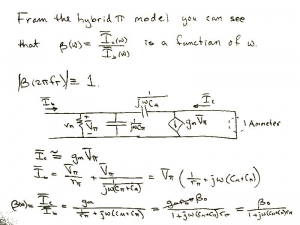 From the hybrid π model you can see
that β(ω) = I̅c(ω) / I̅b(ω) is a function of ω.
|β(2πf_T)| ≡ 1.
I̅b
1/jωCμ
I̅c
rπ
V̅π
1/jωCπ
gmV̅π
Ammeter
I̅c ≅ gm V̅π
I̅b = V̅π/rπ + V̅π / (1/jω(Cπ+Cμ)) = V̅π (1/rπ + jω(Cπ+Cμ))
β(ω) = I̅c/I̅b = gm / (1/rπ + jω(Cπ+Cμ)) = gm rπ = β0 / 1+jω(Cπ+Cμ)rπ = β0 / 1+jω(Cπ+Cμ)rπ